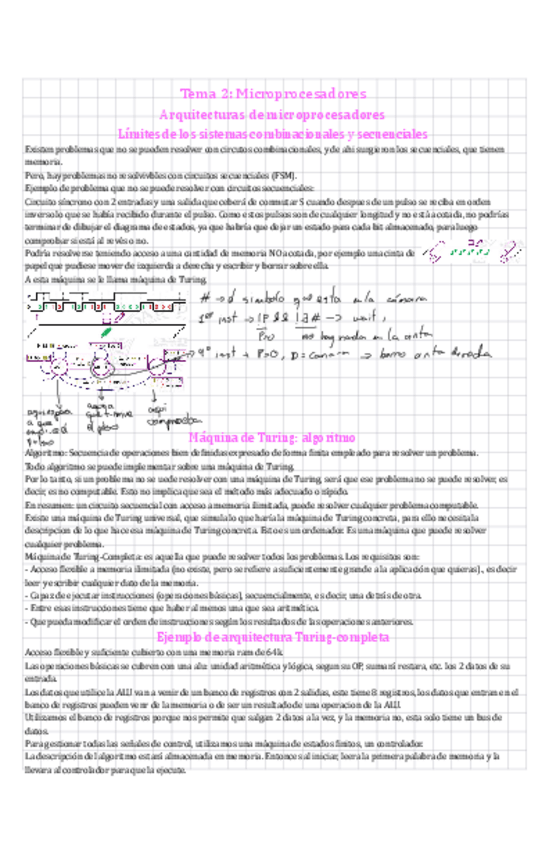 Tema 2: Microprocesadores
Arquitecturas de microprocesadores
Límites de los sistemas combinacionales y secuenciales
Existen problemas que no se pueden resolver con circuitos combinacionales, y de ahi surgieron los secuenciales, que tienen
memoria.
Pero, hay problemas no resolvivbles con circuitos secuenciales (FSM).
Ejemplo de problema que no se puede resolver con circuitos secuenciales:
Circuito síncrono con 2 entradas y una salida que deberá de conmutar S cuando despues de un pulso se reciba en orden
inverso lo que se había recibido durante el pulso. Como estos pulsos son de cualquier longitud y no está acotada, no podrías
terminar de dibujar el diagrama de estados, ya que habría que dejar un estado para cada bit almacenado, para luego
comprobar si está al revés o no.
Podría resolverse teniendo acceso a una cantidad de memoria NO acotada, por ejemplo una cinta de
papel que pudiese mover de izquierda a derecha y escribir y borrar sobre ella.
A esta máquina se le llama máquina de Turing.
# → d simbolo que esta en la cámara
1er inst →
→ wait,
no hay nada en la cinta
9º inst → P=0, D=camara → borro cinta derecha
aqui
comprueba
Máquina de Turing: algoritmo
Algoritmo: Secuencia de operaciones bien definidas expresado de forma finita empleado para resolver un problema.
Todo algoritmo se puede implementar sobre una máquina de Turing.
Por lo tanto, si un problema no se uede resolver con una máquina de Turing, será que ese problema no se puede resolver, es
decir, es no computable. Esto no implica que sea el método más adecuado o rápido.
En resumen: un circuito secuencial con acceso a memoria ilimitada, puede resolver cualquier problema computable.
Existe una máquina de Turing universal, que simula lo que haría la máquina de Turing concreta, para ello necesita la
descripcion de lo que hace esa máquina de Turing concreta. Esto es un ordenador. Es una máquina que puede resolver
cualquier problema.
Máquina de Turing-Completa: es aquella que puede resolver todos los problemas. Los requisitos son:
- Acceso flexible a memoria ilimitada (no existe, pero se refiere a suficientemente grande a la aplicación que quieras), es decir
leer y escribir cualquier dato de la memoria.
- Capaz de ejecutar instrucciones (operaciones básicas), secuencialmente, es decir, una detrás de otra.
- Entre esas instrucciones tiene que haber al menos una que sea aritmética.
- Que pueda modificar el orden de instrucciones según los resultados de las operaciones anteriores.
Ejemplo de arquitectura Turing-completa
Acceso flexible y suficiente cubierto con una memoria ram de 64k.
Las operaciones básicas se cubren con una alu: unidad aritmética y lógica, segun su OP, sumará restara, etc. los 2 datos de su
entrada.
Los datos que utilice la ALU van a venir de un banco de registros con 2 salidas, este tiene 8 registros, los datos que entran en el
banco de registros pueden venir de la memoria o de ser un resultado de una operacion de la ALU.
Utilizamos el banco de registros porque nos permite que salgan 2 datos a la vez, y la memoria no, esta solo tiene un bus de
datos.
Para gestionar todas las señales de control, utilizamos una máquina de estados finitos, un controlador.
La descripción del algoritmo estará almacenada en memoria. Entonces al iniciar, leera la primera palabra de memoria y la
llevara al controlador para que la ejecute.